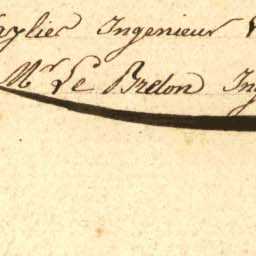 aylier Ingenieur
Mr Le Breton Ing